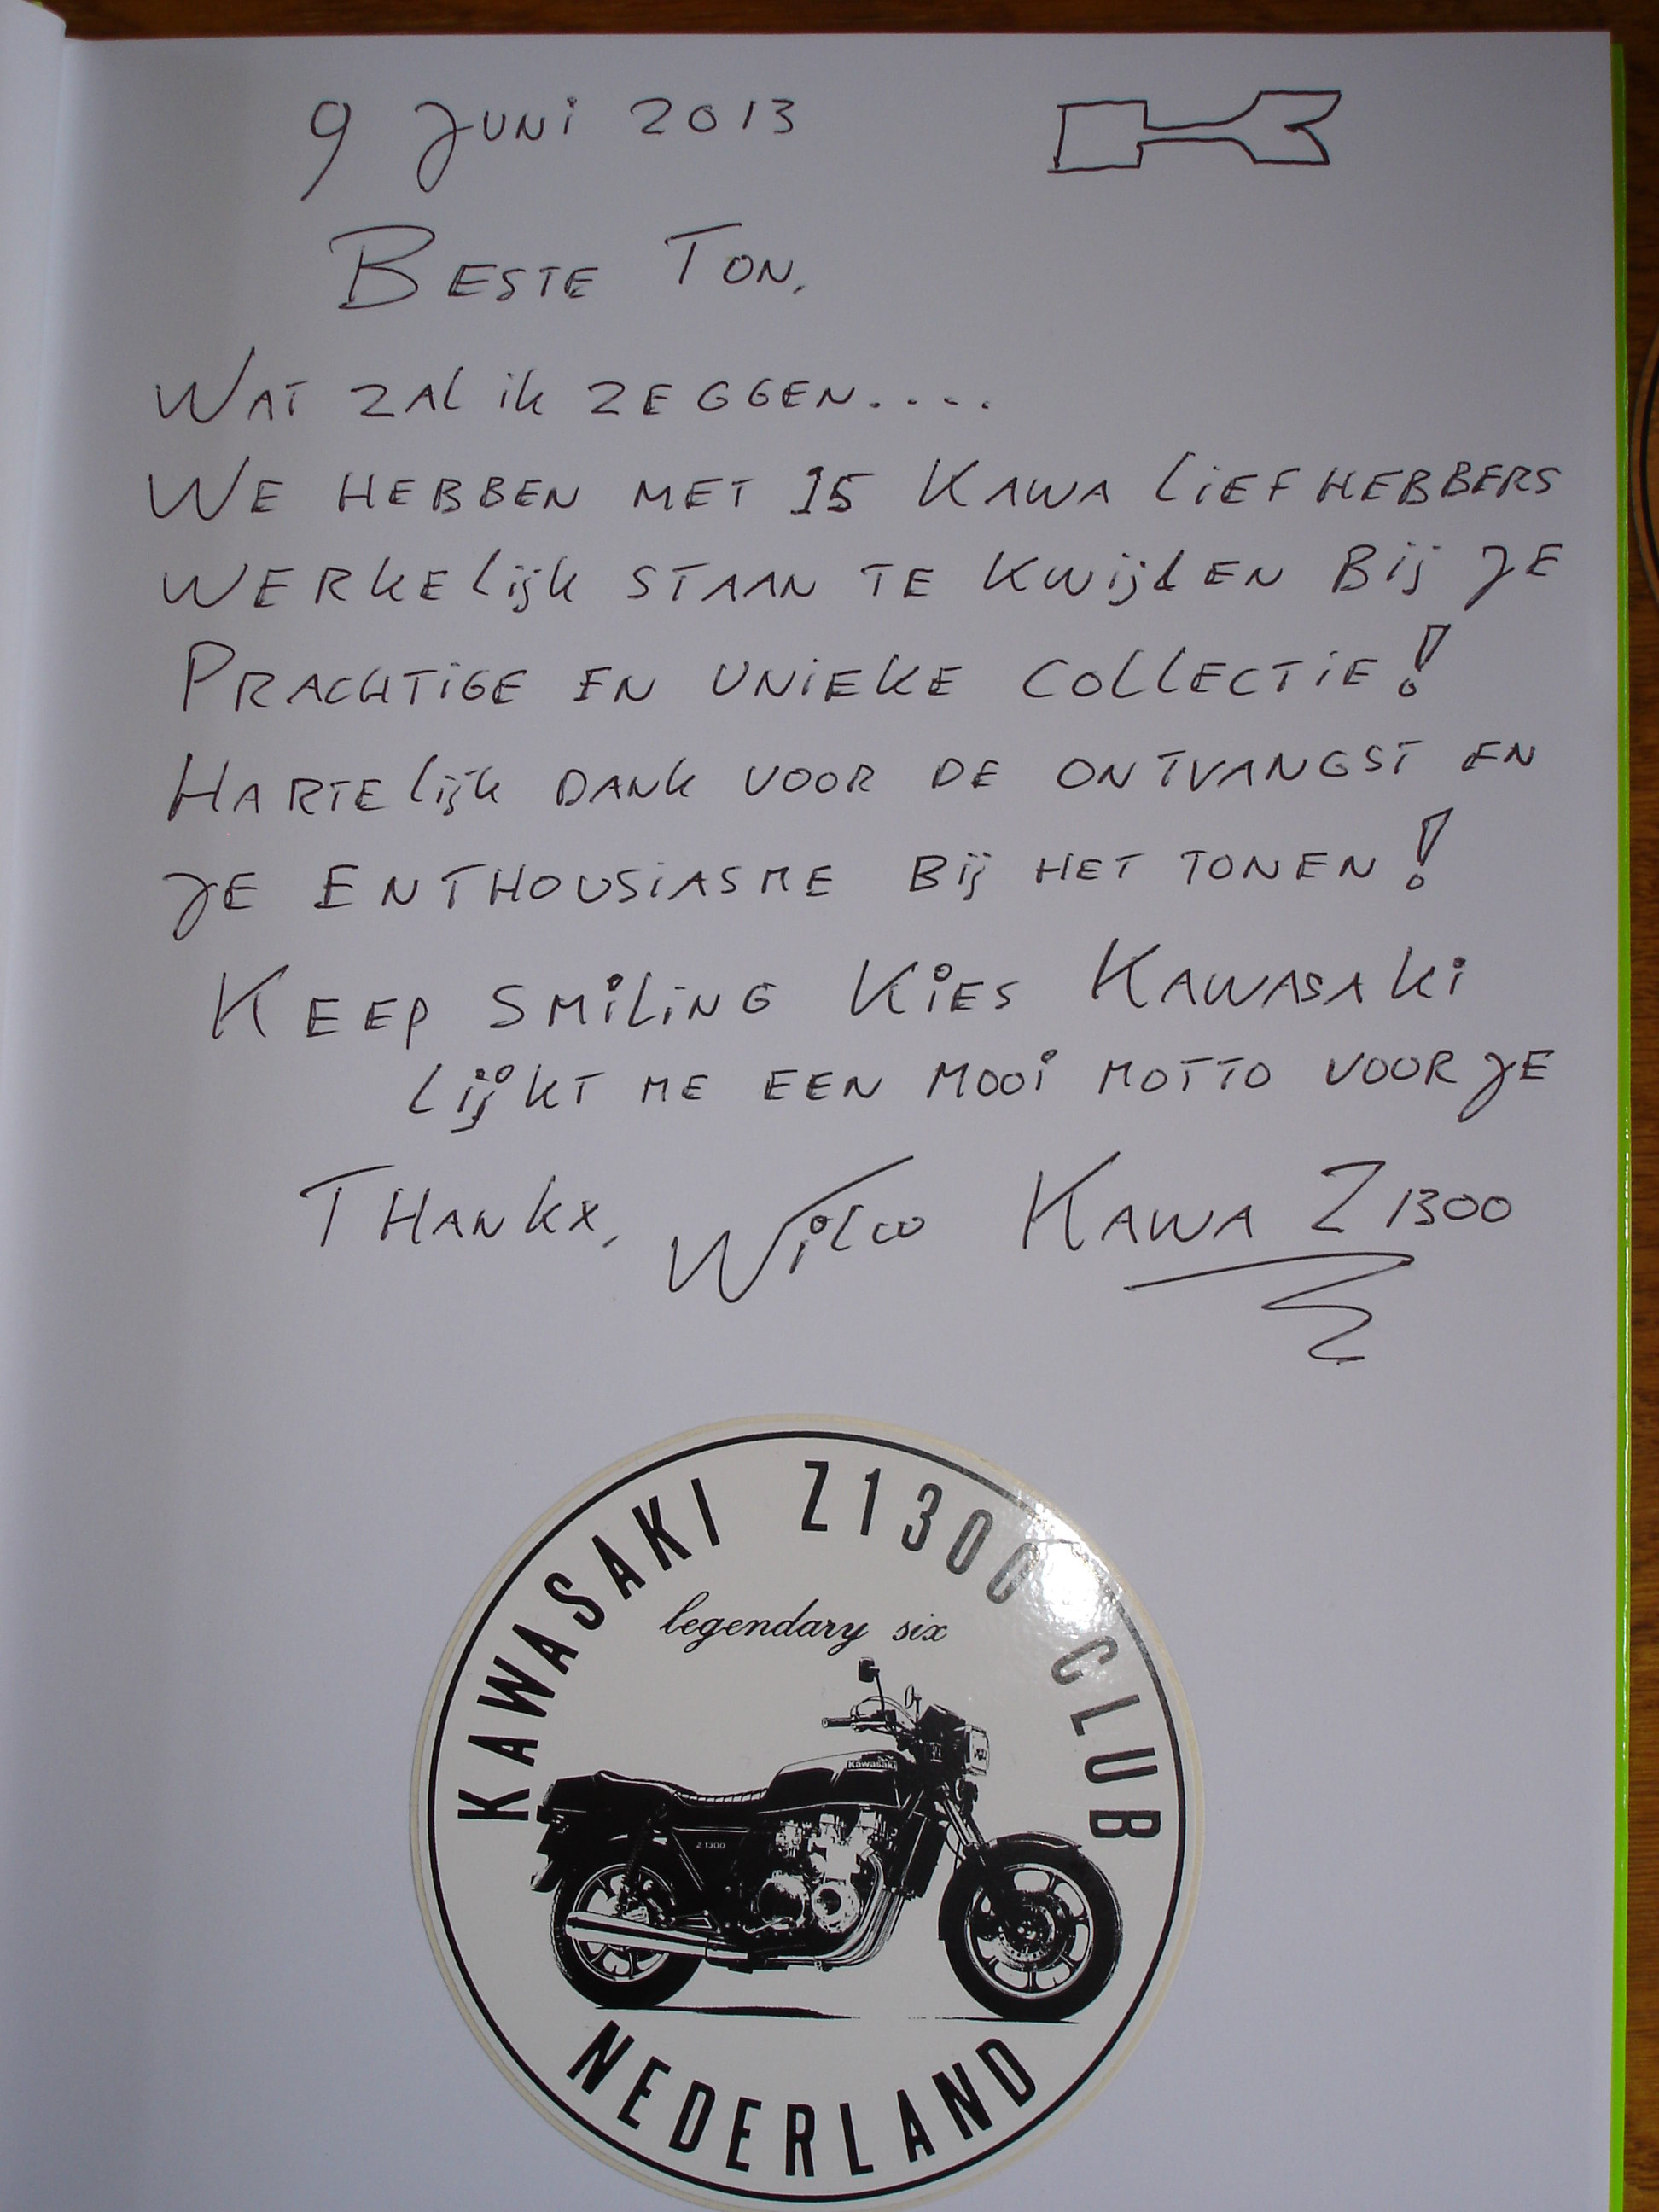 9 Juni 2013
BESTE TON,
WAT ZAL ik ZEGGEN....
WE HEBBEN MET 15 KAWA LIEFHEBBERS
WERKELijk STAAN TE KWijLEN Bij JE
PRACHTIGE EN UNIEKE COLLECTIE!
HARTELijk DANK VOOR DE ONTVANGST EN
JE ENTHOUSIASME Bij HET TONEN!
KEEP SMILING KIES KAWASAKI
LijKT ME EEN MOOI MOTTO VOOR JE
THANKX, Wilco KAWA Z1300
KAWASAKI Z1300 CLUB
legendary six
Kawasaki
Z1300
NEDERLAND